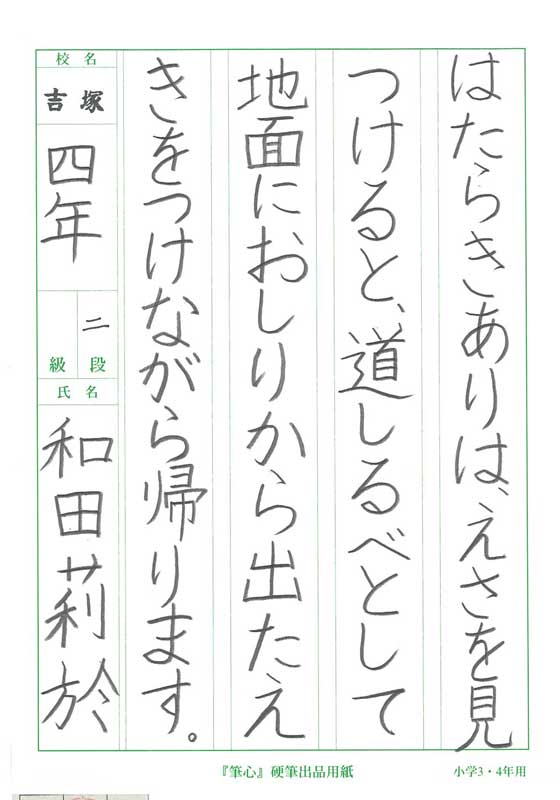 はたらきありは、えさを見
つけると、道しるべとして
地面におしりから出たえ
きをつけながら帰ります。
校名
吉塚
四年
二
級段
氏名
和田莉於
『筆心』硬筆出品用紙
小学3・4年用